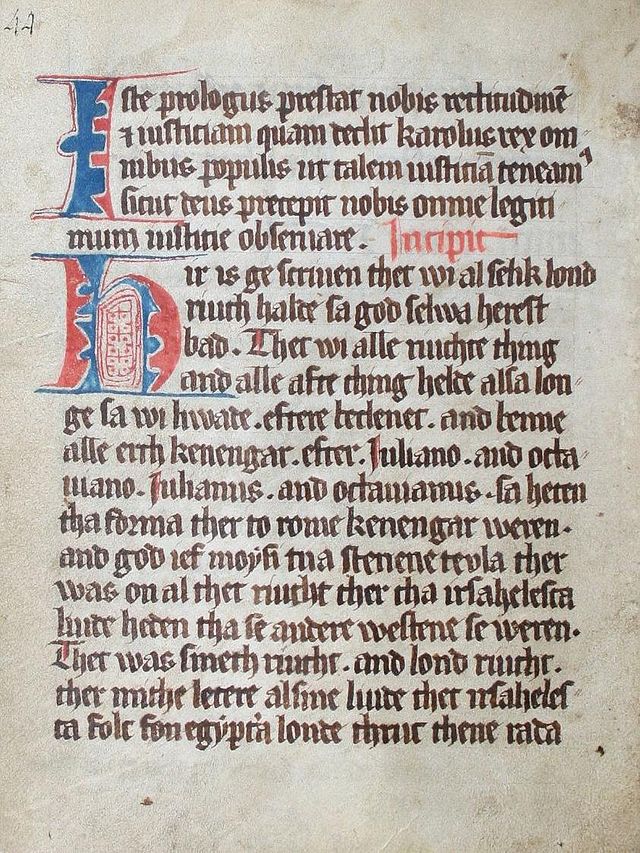 44
Iste prologus prestat nobis rectitudinē
⁊ iusticiam quam recht karolus rex om
nibus populis ut talem iusticiā teneam᷒
sicut deus precepit nobis omnie legiti
mum iusticie obseruare. Incipit
Hir is ge scriuen thet wi al selik lond
riuch halde sa god selwa herest
bad. Thet wi alle riuchte thing
and alle afte thing helde alsa lon
ge sa wi liwade. eftere. and benne
alle erth kenengar. efter. Juliano. and octa
uiano. Julianus. and octauianus. sa heten
tha forma ther to rome kenengar weren.
and god ief moysi tua stenene tevla ther
was on al thet riucht ther tha irsahelesca
liude heden tha se andere westene se weren.
Thet was smeth riucht. and lond riucht.
ther mithe letere alsine liude thet irsaheles
ca folc fon egypta londe thruc thene rada